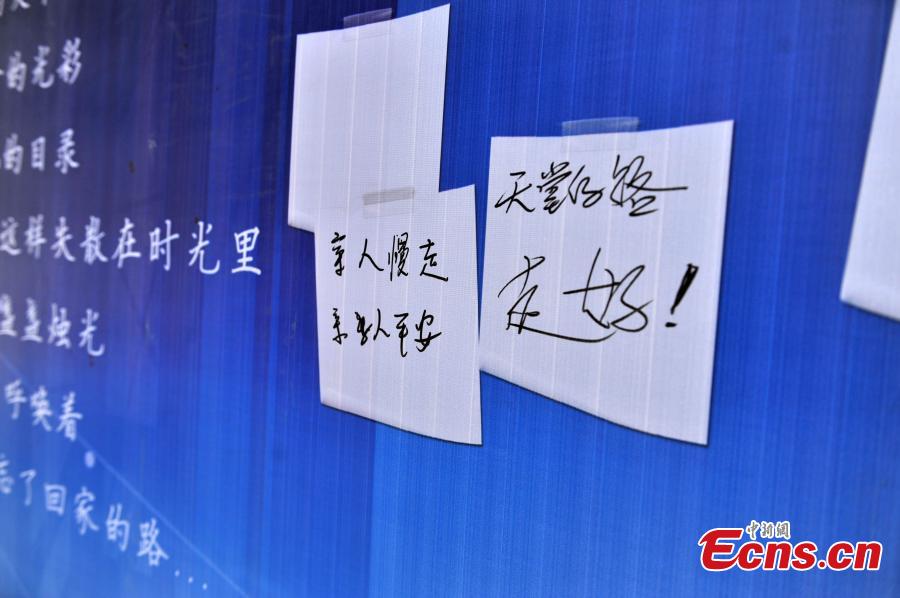 的光彩
的目录
这样失散在时光里
盏盏烛光
呼唤着
忘了回家的路...
亲人慢走
亲人平安
天堂的路
走好!
中新網
Ecns.cn